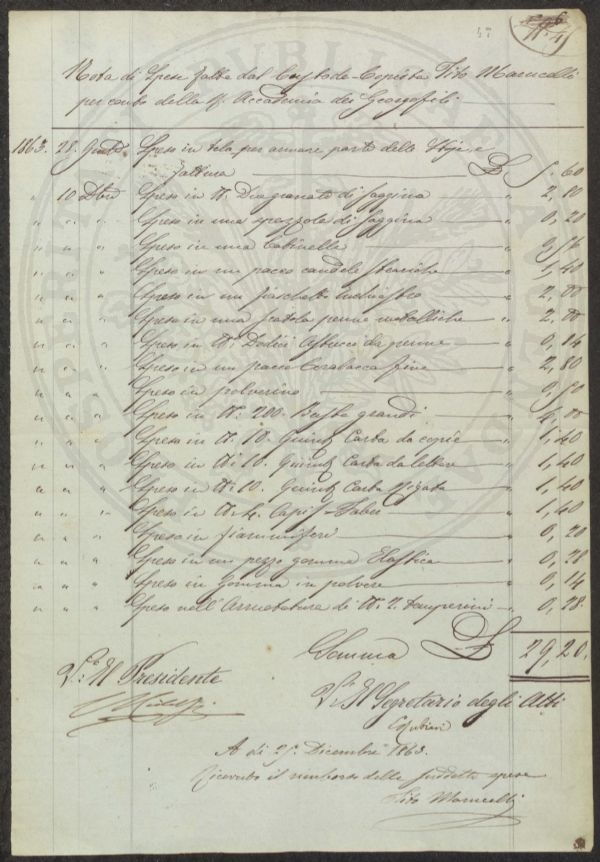 47
Nota di Spese fatte dal Custode-Copista Tito Marucelli
per conto della R. Accademia dei Georgofili.
1863. 28. Spese in tela per armare parte delle Stoje, e
fattura £ 5. 60
" 10 Dbre Spese in N. Due granate di Saggina " 2, 80
" " " Spese in una spazzola di Saggina " 0, 20
" " " Spese in una Catinella " 0, 56
" " " Spese in un pacco candele steariche " 1, 40
" " " Spese in un fiaschetto inchiostro " 2, 00
" " " Spese in una scatola penne metalliche " 2, 00
" " " Spese in N. Dodici Astucci da penne " 0, 84
" " " Spese in un pacco Ceralacca fine " 2, 80
" " " Spese in polverino
" " " Spese in N. 200. Buste grandi "
" " " Spese in N. 10. Quint. Carta da copie " 1, 40
" " " Spese in N. 10. Quint. Carta da lettere " 1, 40
" " " Spese in N. 10 Quint. Carta Rigata " 1, 40
" " " Spese in N. 4. Lapis-Faber " 1, 40
" " " Spese in fiammiferi " 0, 20
" " " Spese in un pezzo gomma Elastica " 0, 28
" " " Spese in Gomma in polvere " 0, 14
" " " Spese nell'Arruotatura di N. 2. temperini " 0, 28.
Somma £ 29, 20.
V. Il Presidente
V. Il Segretario degli Atti
A dì Dicembre 1863.
Ricevuto il rimborso delle suddette spese
Tito Marucelli